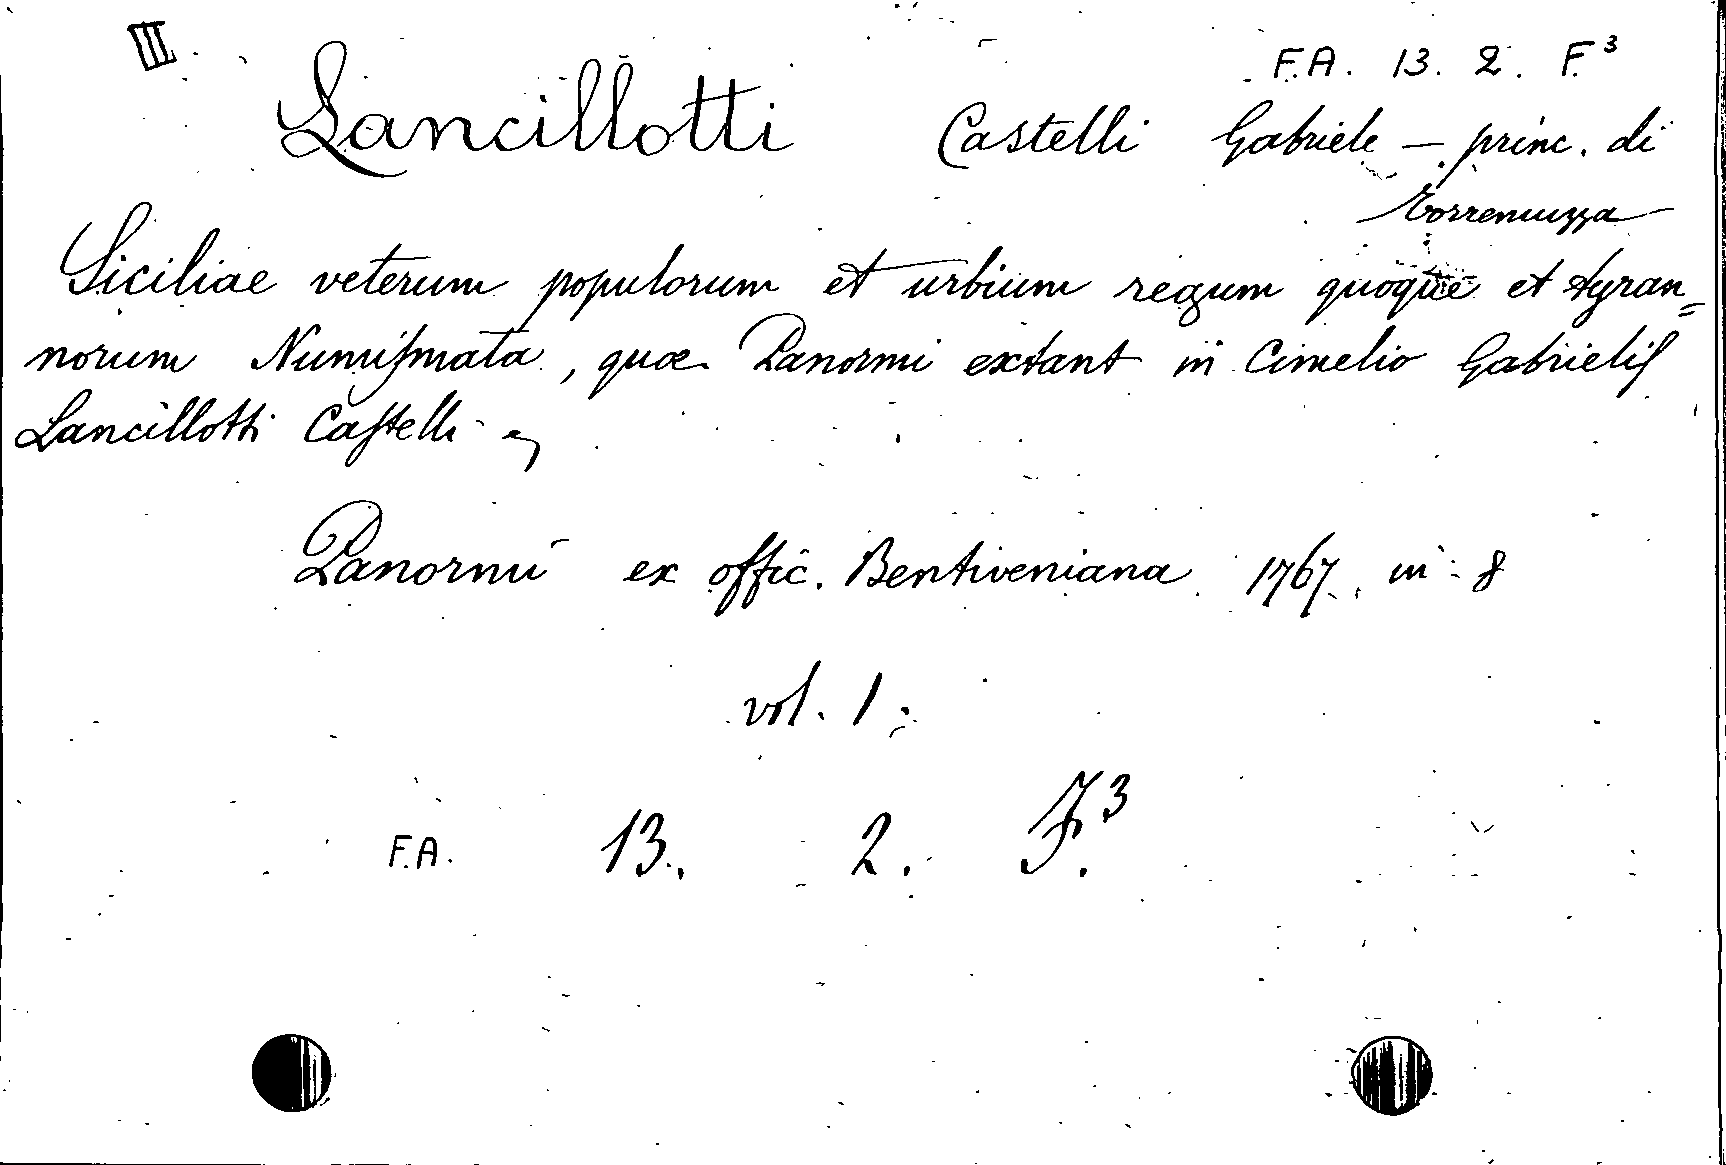 III.
F.A. 13. 2. F.³
Lancillotti Castelli Gabriele — princ. di
Torremuzza
Siciliae veterum populorum et urbium regum quoque et tyran=
norum Numiſmata, quæ Panormi extant in Cimelio Gabrieliſ
Lancillotti Caſtelli
Panormi ex offic. Bentiveniana 1767. in 8
vol. 1.
F.A. 13. 2. F.³